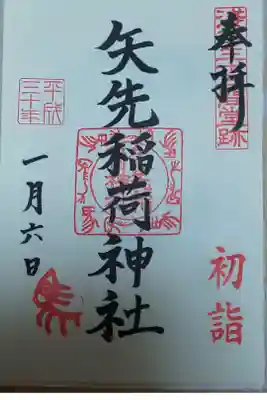 奉拝
初詣
矢先稲荷神社
平成
三十年
一月六日